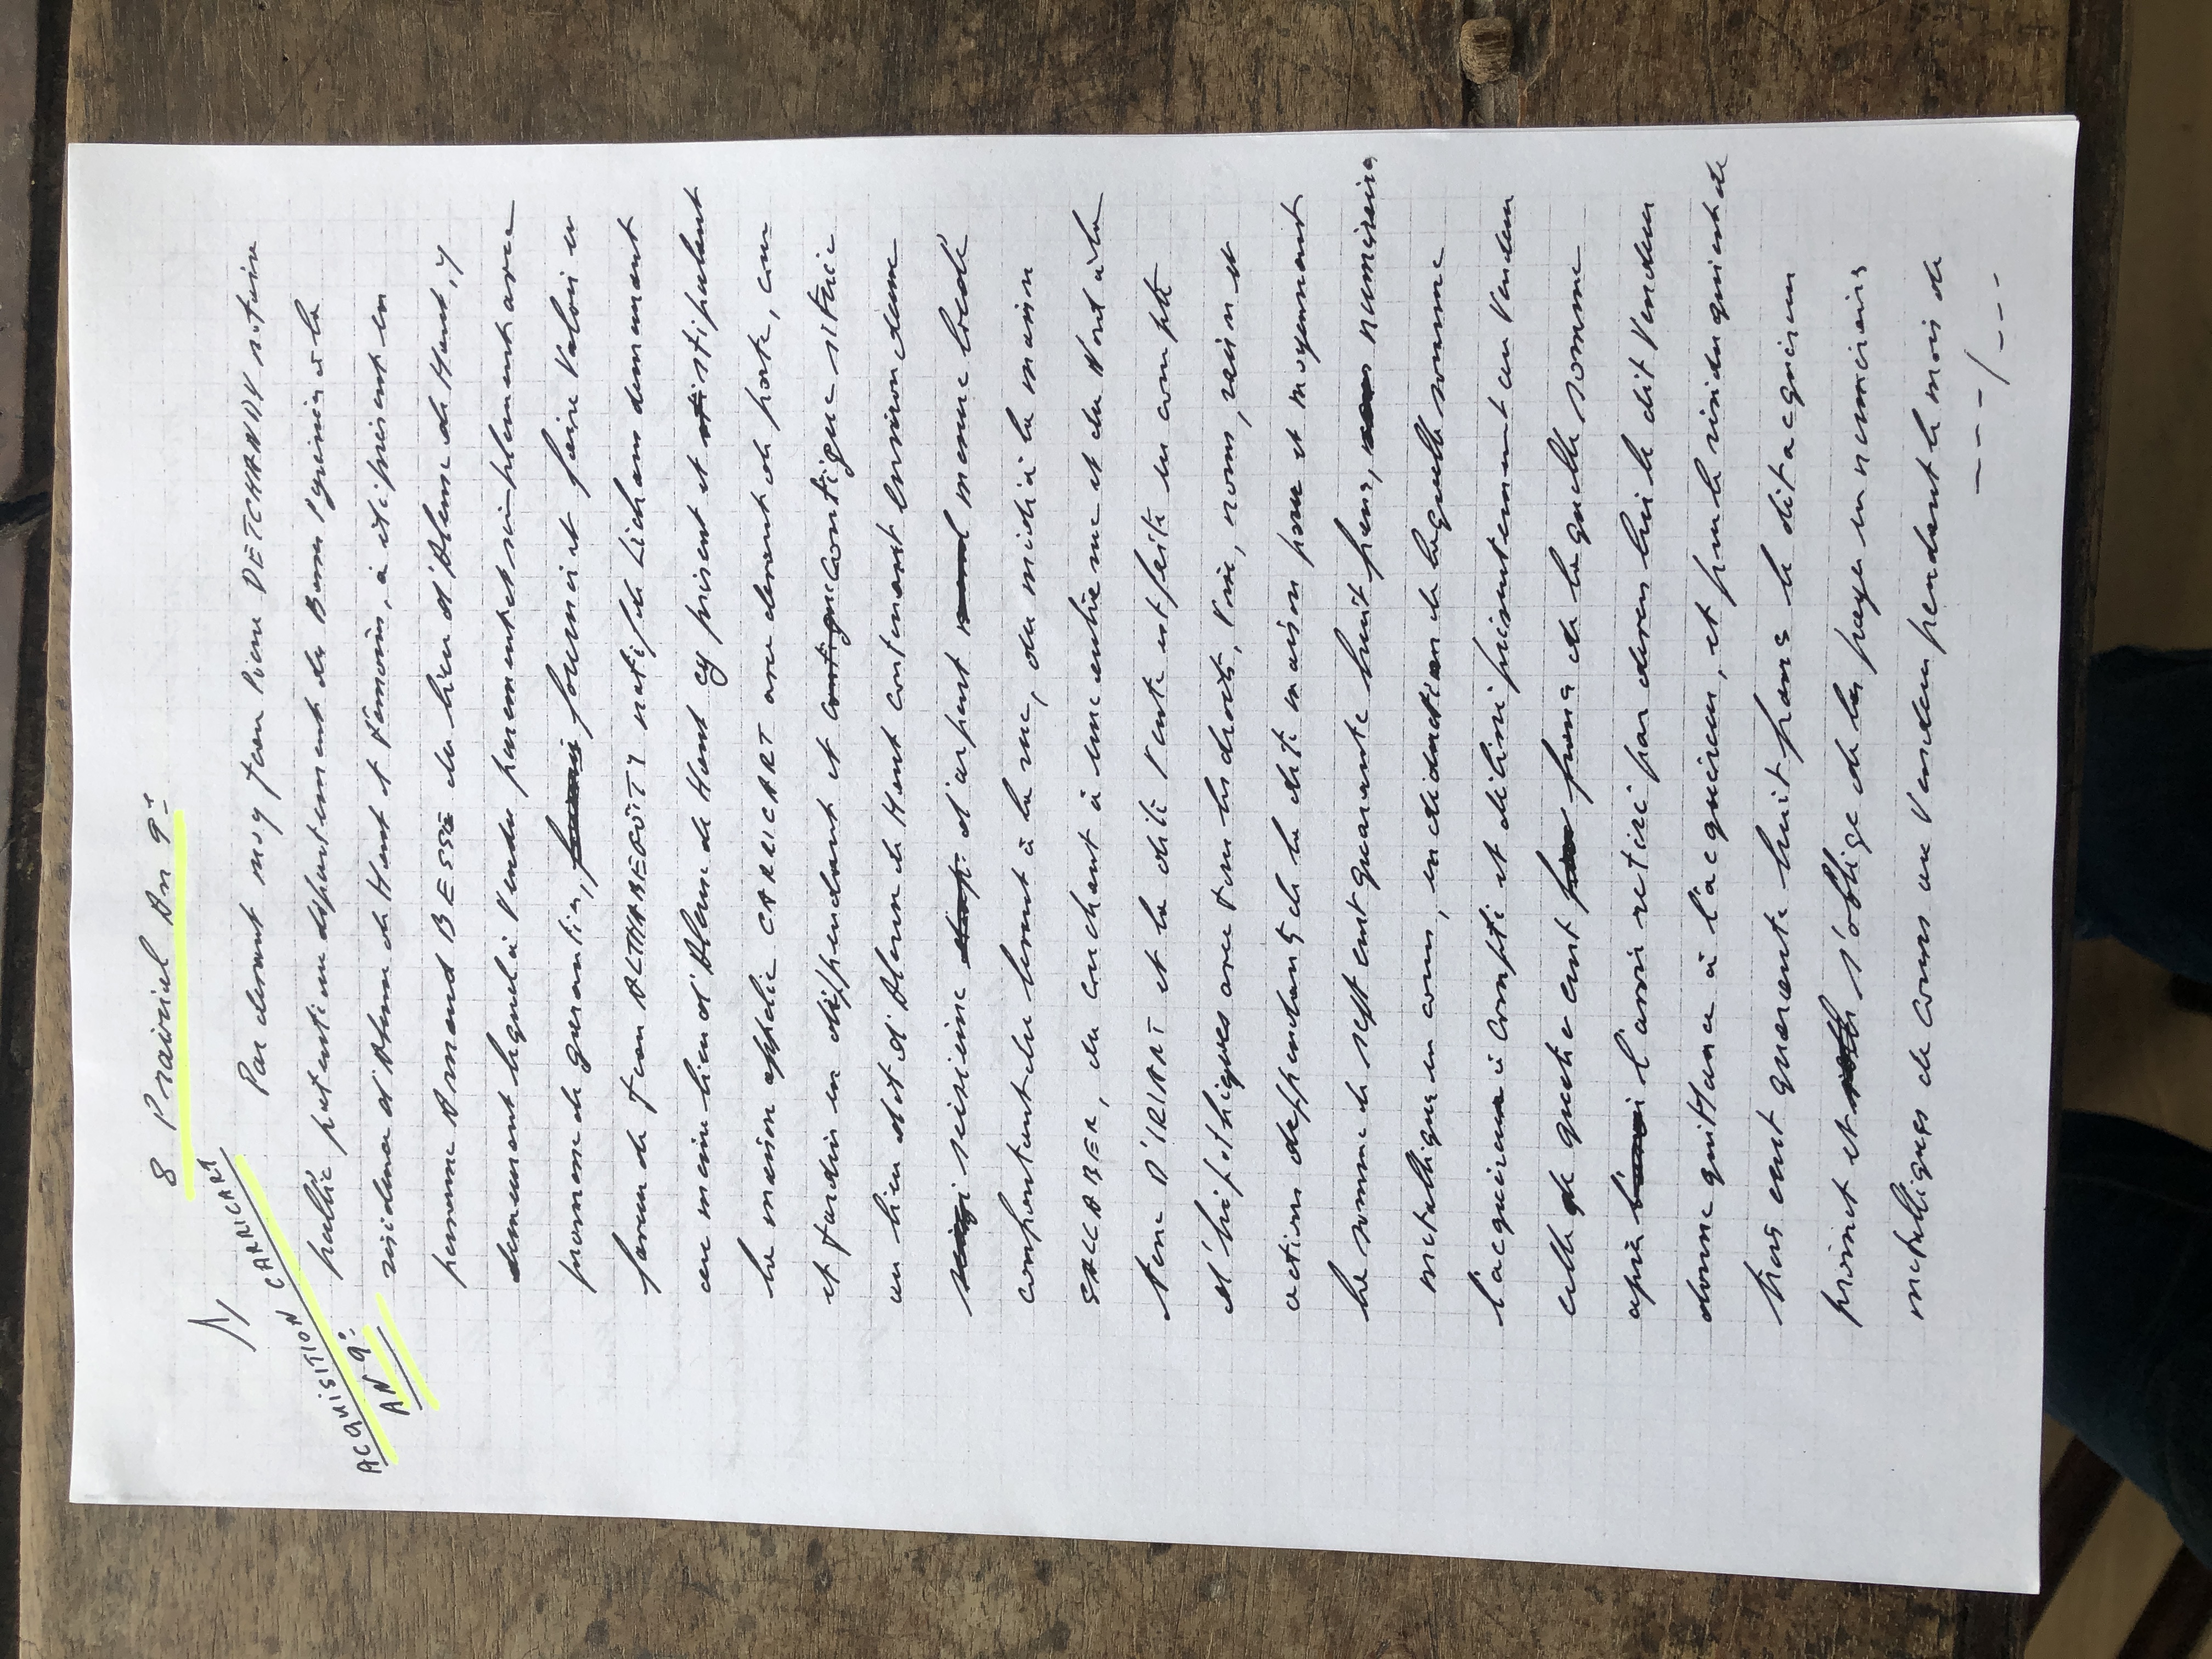 8 Prairial An 9e
1/
ACQUISITION CARRICART
AN 9e
Par devant moy Jean Pierre DETCHANDY notaire
public patenté au département des Basses Pyrénées à la
résidence d'Ahaxe de Haut et témoins, a été présent en
personne Armand BESSE du lieu d'Ahaxe de Haut, y
demeurant lequel a vendu purement et simplement avec
promesse de garantir, fournir et faire valoir en
faveur de Jean ALTHABEGOÏTY natif de Licham demeurant
au meme lieu d'Ahaxe de Haut cy présent et stipulant
la maison appelée CARRICART avec devant de porte, cour
et jardin en déppendant et contigue située
au lieu dit d'Ahaxe de Haut contenant environ deux
seizieme d'arpent meme local
confrontant du levant à la rue, du midi à la maison
SALLABER, du couchant à une autre rue et du Nord à la
terre D'IRIART et la dite vente est faite en compte
d'hipothèques avec tous les droits, voix, noms, raison et
action deppendants de la dite maison pour et moyennant
la somme de sept cent quarante huit francs, numéraires
métalliques en cours, en déduction de laquelle somme
l'acquereur a compté et délivré présentement au Vendeur
celle de quatre cent francs de laquelle somme
après l'avoir retiré par devers lui le dit Vendeur
donne quittance à l'acquereur, et pour le résidu qui est de
trois cent quarante huit francs le dit acquereur
promet et s'oblige de les payer en numéraires
métalliques de cours au Vendeur pendant le mois de
---/---